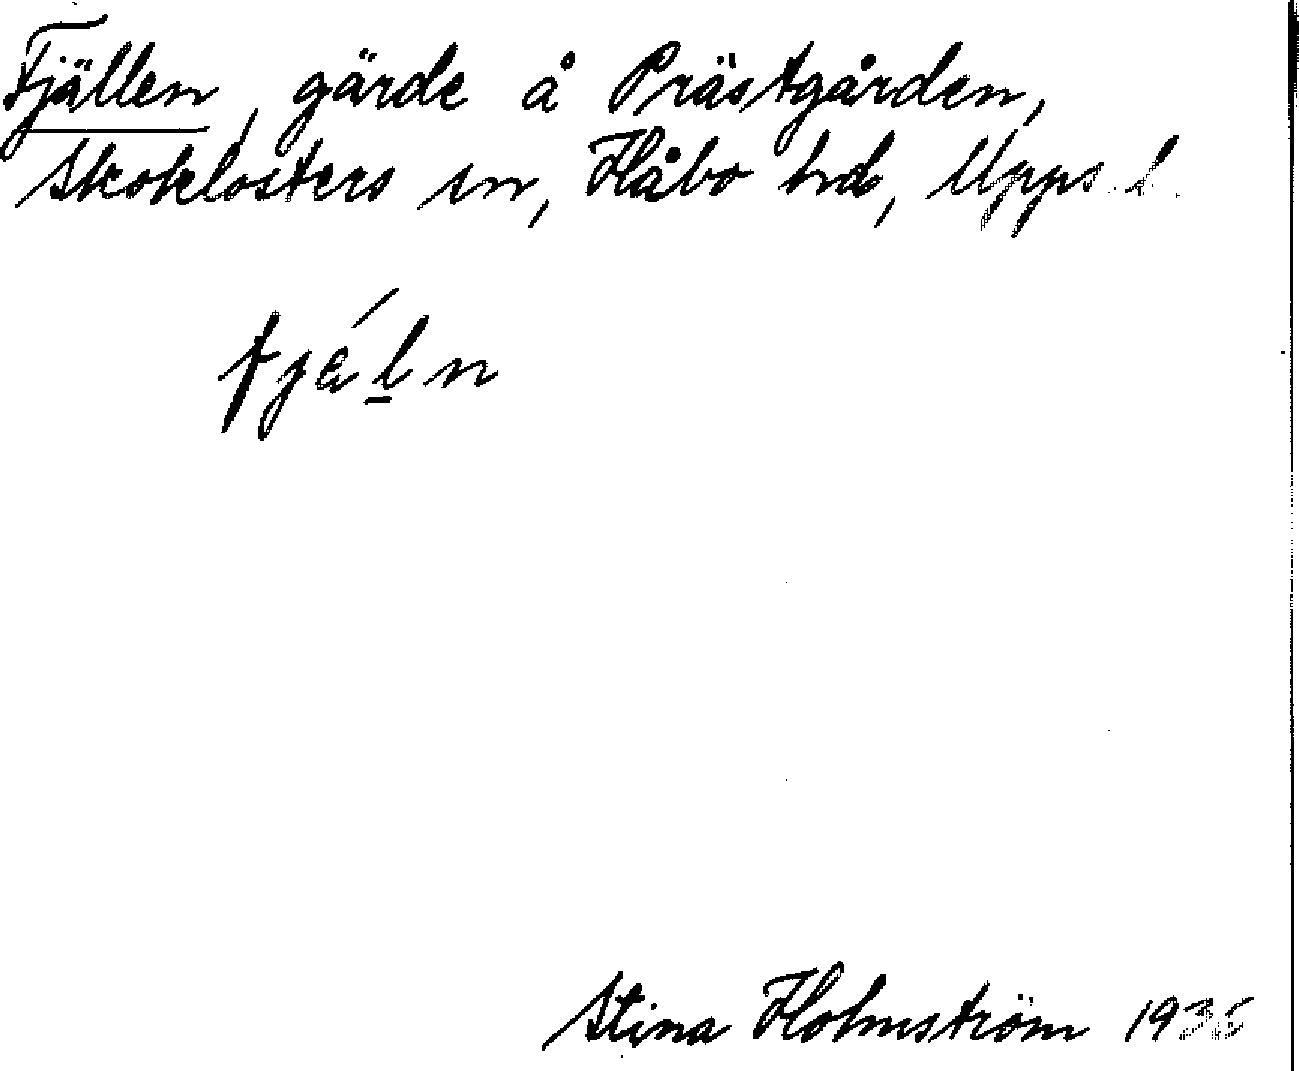 Fjällen, gärde å Prästgården,
Skoklosters sn, Håbo hd, Upps. l.
fjä́l̲n
Stina Holmström 1935